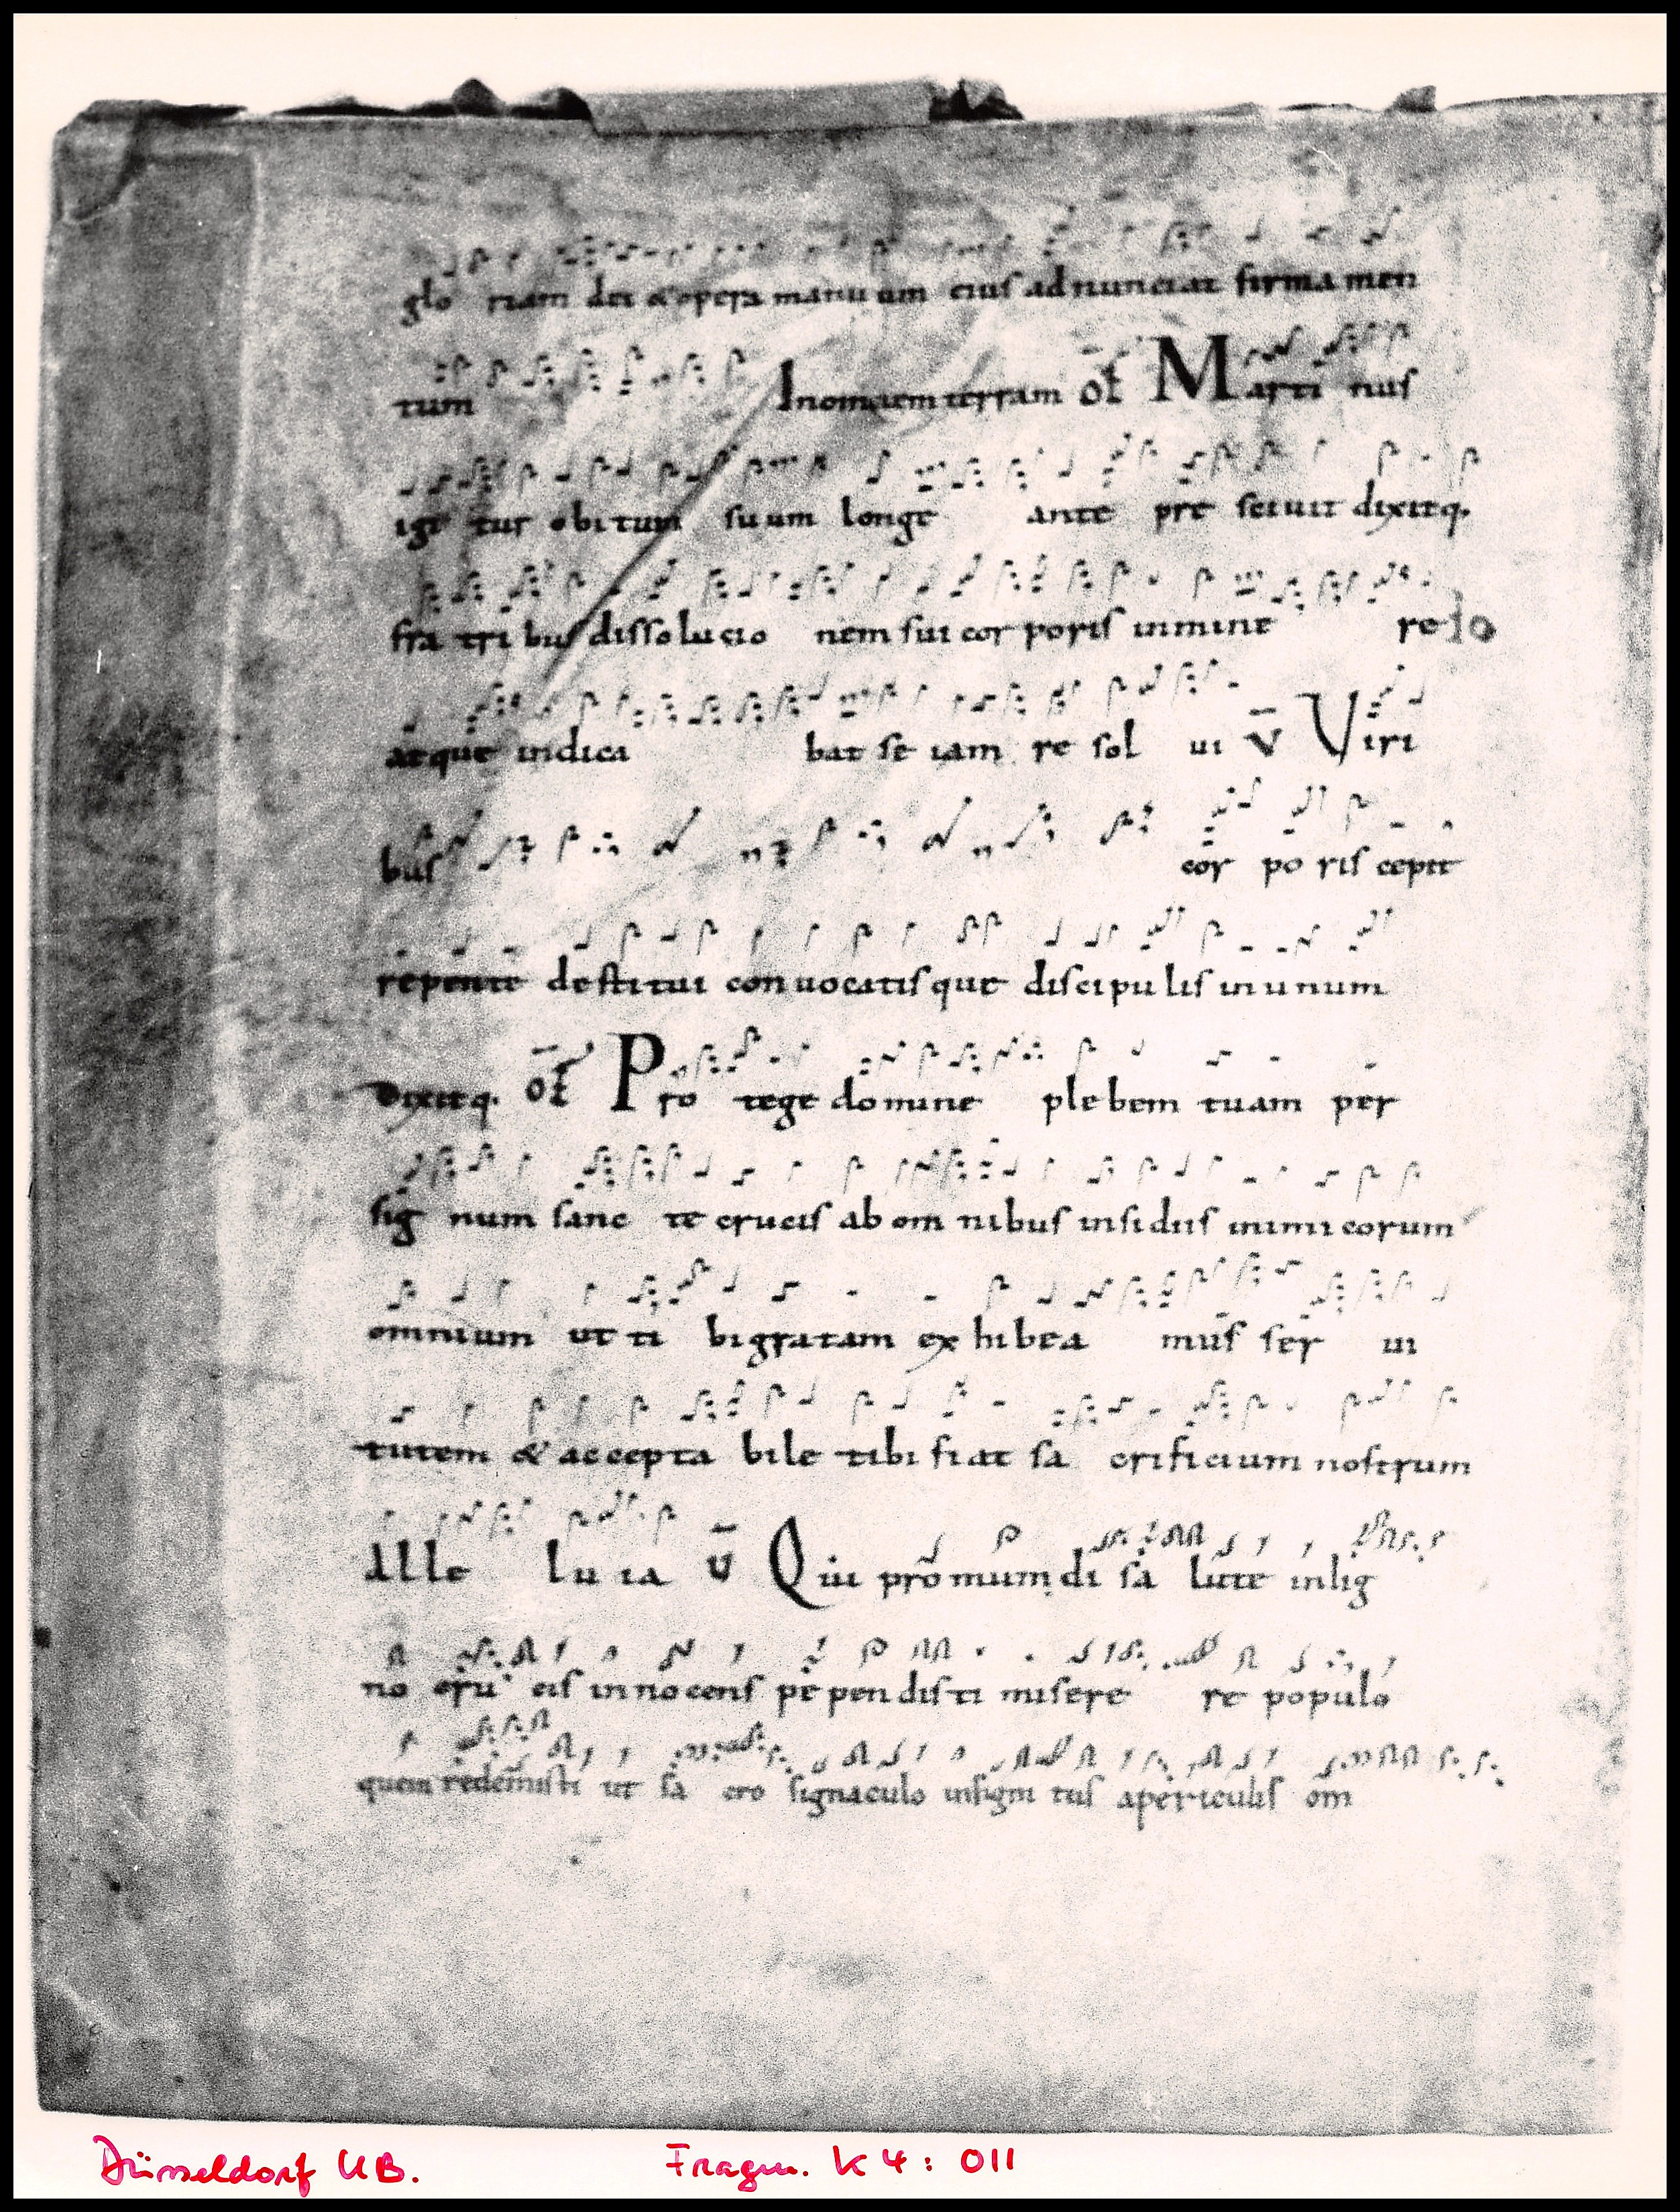 glo riam dei & opera manuum eius adnunciat firmamen
tum Inomnem terram of̄ Marti nus
igi tur obitum suum longe ante pre sciuit dixitq.
fra tri bus dissolucio nem sui cor poris inmine re
atque indica bat se iam re sol ui v̄ Viri
bus cor po ris cepit
repente destitui conuocatisque discipulis inunum
Dixitq. of̄ Pro tege domine plebem tuam per
sig num sanc te crucis ab om nibus insidiis inimicorum
omnium ut ti bi gratam ex hibea mus ser ui
tutem & accepta bile tibi fiat sa crificium nostrum
Alle lu ia v̄ Qui pro mundi sa lute inlig
no cru cis innocens pe pen disti misere re populo
quem redemisti ut sa cro signaculo insigni tus apericulis om
Düsseldorf UB. Fragm. K 4: 011